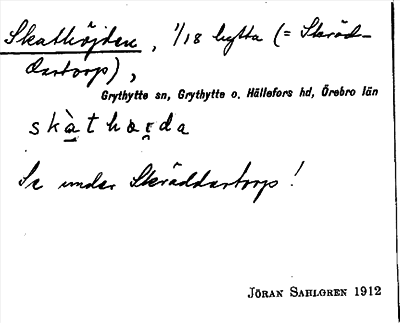 Skatthöjden, 1/18 hytta (= Skräd-
dartorp),
Grythytte sn, Grythytte o. Hällefors hd, Örebro län
skàthæɪda
Se under Skräddartorp!
JÖRAN SAHLGREN 1912